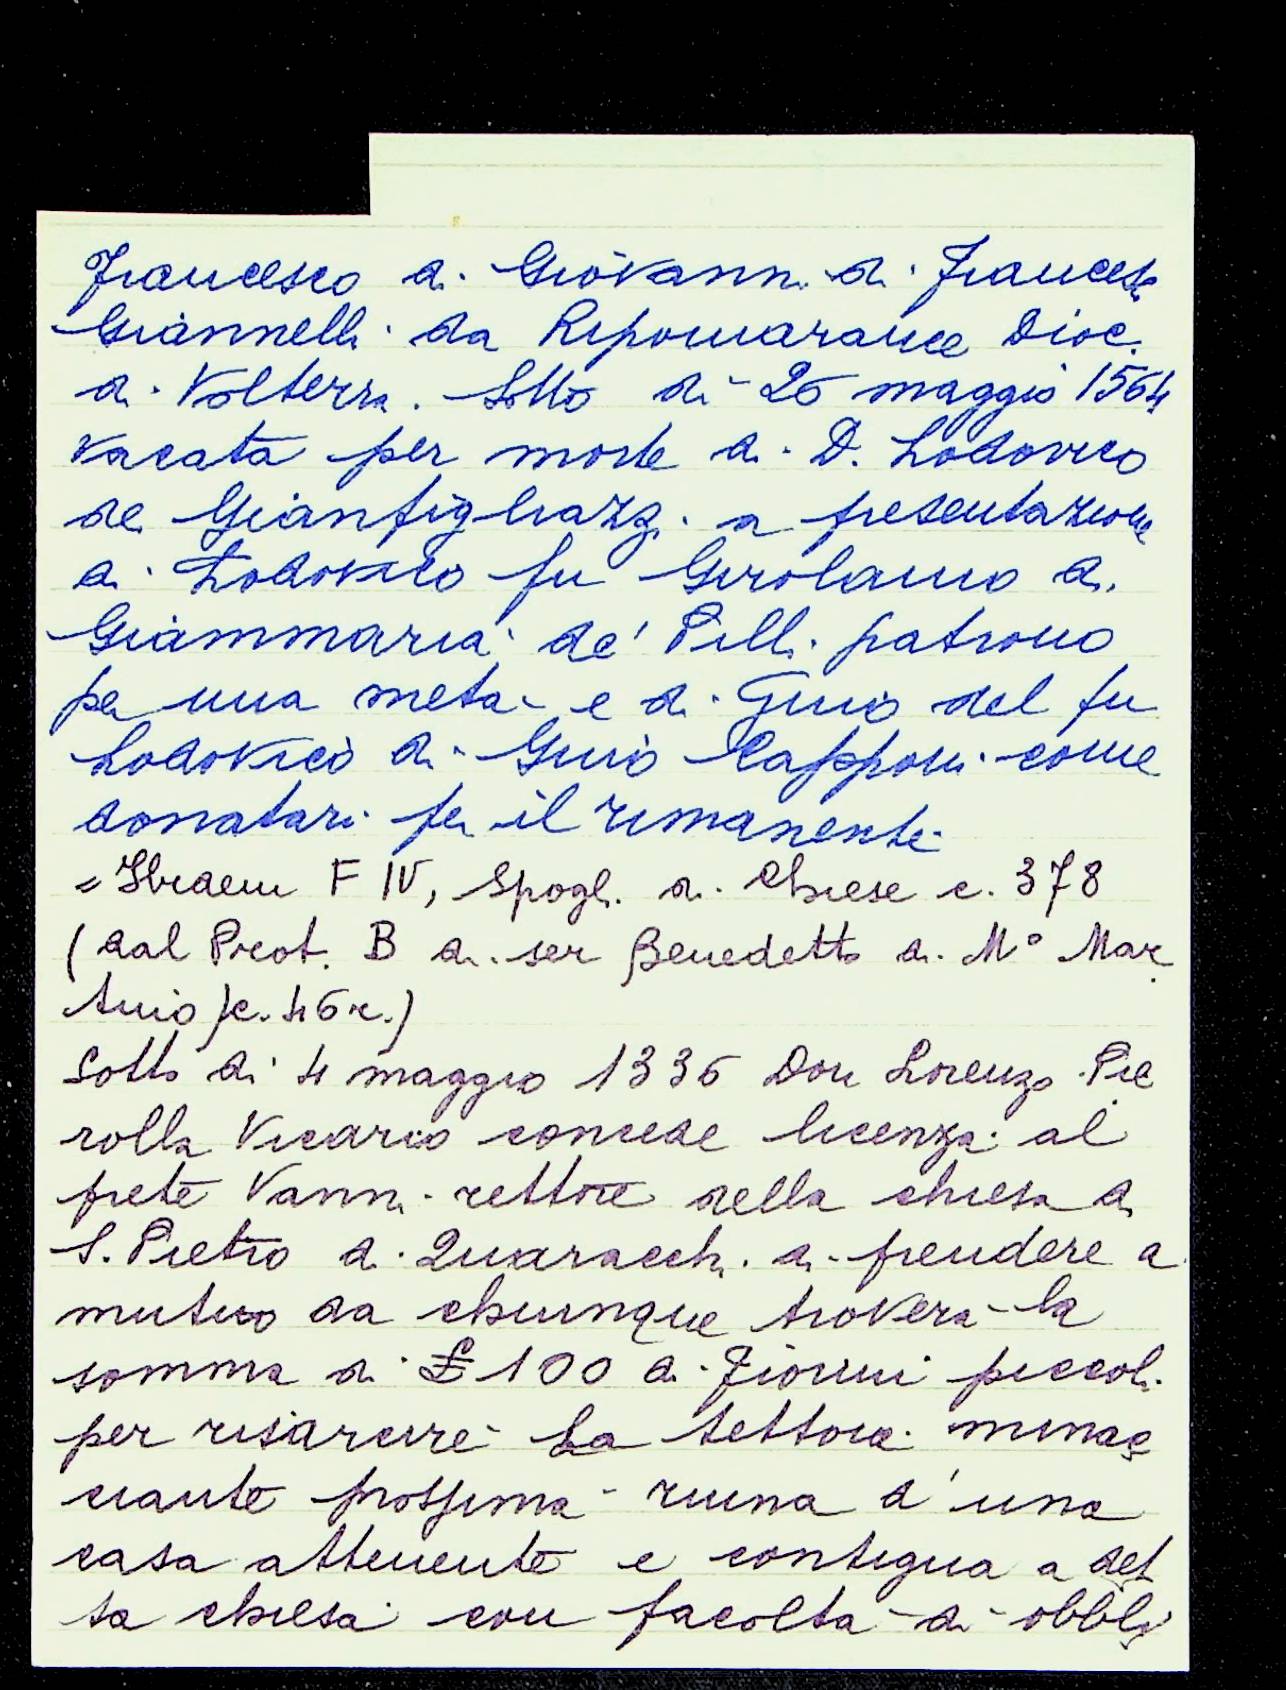 Francesco di Giovanni di Francesco
Giannelli da Ripomarance Dioc.
di Volterra. Sotto dì 26 maggio 1564
vacata per morte di D. Lodovico
de Gianfigliazzi a presentazione
di Lodovico fu Girolamo di
Giammaria de' Pilli patrono
per una metà e di Gino del fu
Lodovico di Gino Capponi come
donatari per il rimanente
Ibidem F IV, Spogli di Chiese c. 378
(dal Prot. B di ser Benedetto di M° Mar
tino) c. 46 r.)
Sotto dì 4 maggio 1336 Don Lorenzo Pie
rolla Vicario concede licenza al
prete Vanni rettore della chiesa di
S. Pietro a Quaracchi di prendere a
mutuo da chiunque troverà la
somma di £ 100 di Fiorini piccoli
per risarcire la tettoia minac
ciante prossima ruina d'una
casa attenente e contigua a det
ta chiesa con facoltà di obbli